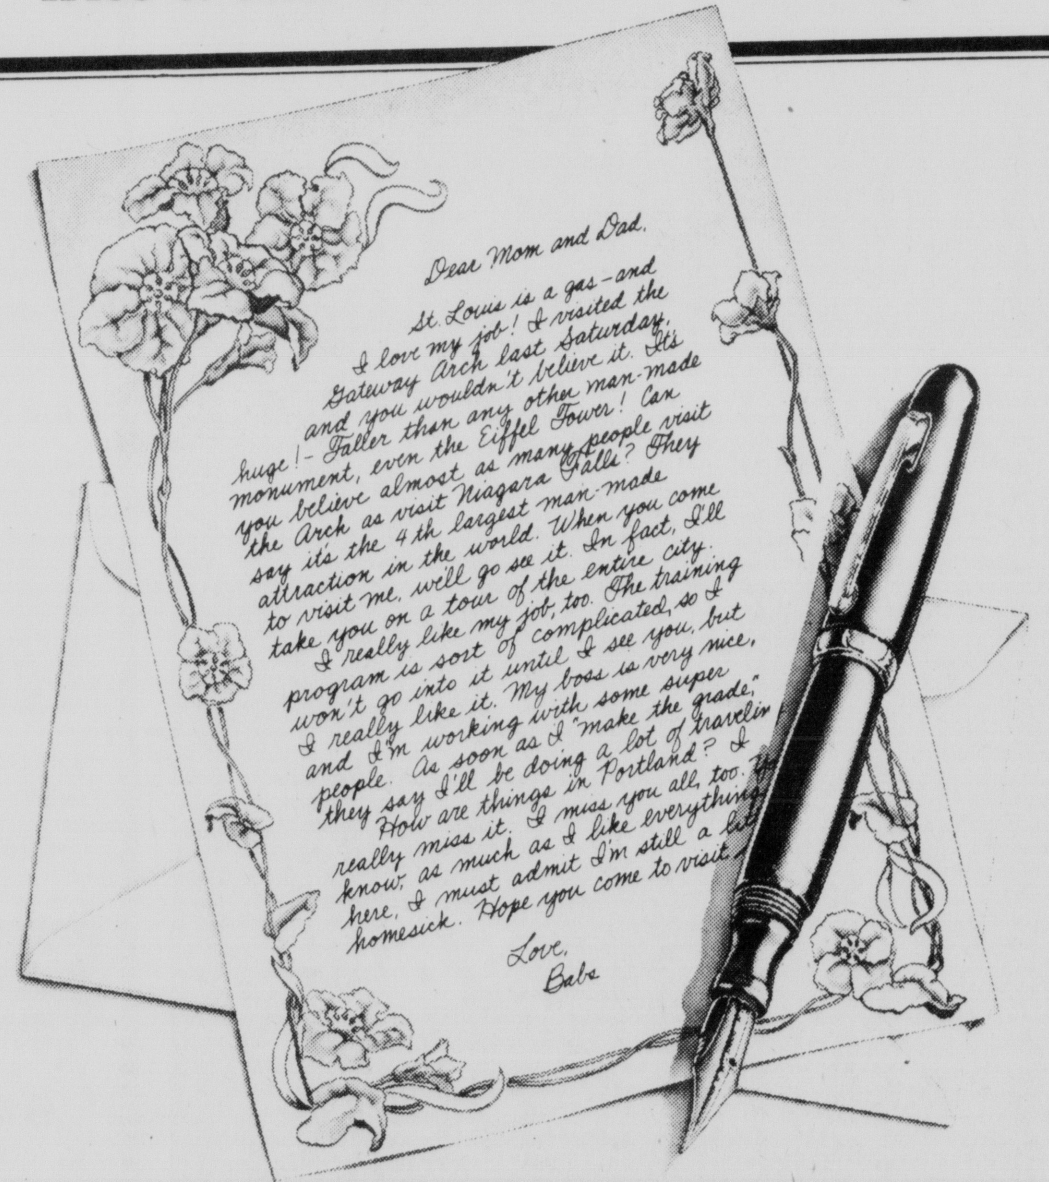 Dear Mom and Dad,
St. Louis is a gas - and
I love my job! I visited the
Gateway Arch last Saturday,
and you wouldn't believe it. It's
huge! - Taller than any other man-made
monument, even the Eiffel Tower! Can
you believe almost as many people visit
the Arch as visit Niagara Falls? They
say it's the 4th largest man-made
attraction in the world. When you come
to visit me, we'll go see it. In fact, I'll
take you on a tour of the entire city.
I really like my job, too. The training
program is sort of complicated, so I
won't go into it until I see you, but
I really like it. My boss is very nice,
and I'm working with some super
people. As soon as I "make the grade,"
they say I'll be doing a lot of travelin
How are things in Portland? I
really miss it. I miss you all, too.
know, as much as I like everything
here, I must admit I'm still a
homesick. Hope you come to visit
Love,
Babs